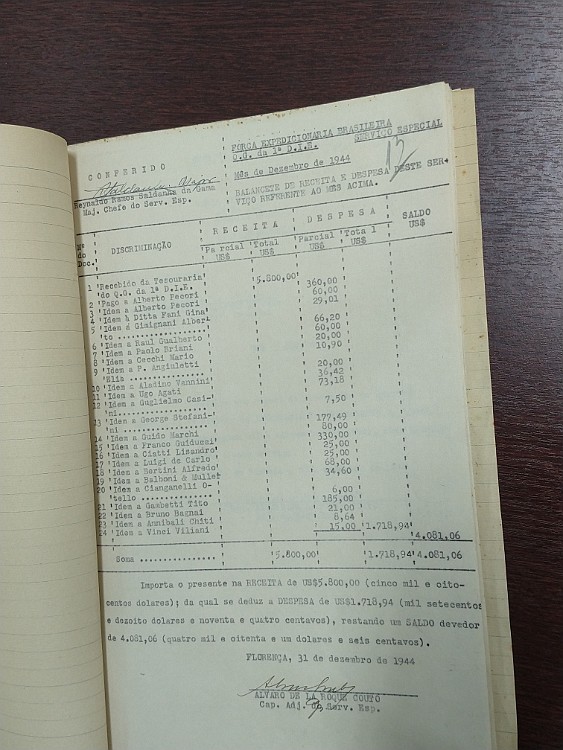 CONFERIDO
Reynaldo Ramos Saldanha da Gama
Maj. Chefe do Serv. Esp.
FORÇA EXPEDICIONARIA BRASILEIRA
Q.G. da 1ª D.I.E. SERVIÇO ESPECIAL
Mês de Dezembro de 1944
BALANCETE DE RECEITA E DESPESA DESTE SER-
VIÇO REFERENTE AO MÊS ACIMA.
Nº do Doc. DISCRIMINAÇÃO RECEITA DESPESA SALDO US$
Parcial US$ Total US$ Parcial US$ Total US$
1 Recebido da Tesouraria
do Q.G. da 1ª D.I.E. 5.800,00
2 Pago a Alberto Pecori 360,00
3 Idem a Alberto Pecori 60,00
4 Idem à Ditta Fani Gina 29,01
5 Idem a Gimignani Alber-
to ................ 66,20
6 Idem a Raul Gualberto 60,00
7 Idem a Paolo Briani 20,00
8 Idem a Cecchi Mario 10,90
9 Idem a P. Angiuletti
Elia ............... 20,00
10 Idem a Aladino Vannini 36,42
11 Idem a Ugo Agati 73,18
12 Idem a Guglielmo Casi-
ni................. 7,50
13 Idem a George Stefani-
ni ................ 177,49
14 Idem a Guido Marchi 80,00
15 Idem a Franco Guiducci 330,00
16 Idem a Ciatti Lisandro 25,00
17 Idem a Luigi de Carlo 25,00
18 Idem a Bertini Alfredo 68,00
19 Idem a Balboni & Muller 34,60
20 Idem a Cianganelli O-
tello ............... 6,00
21 Idem a Gambetti Tito 185,00
22 Idem a Bruno Bagnai 21,00
23 Idem a Annibali Chiti 8,64
24 Idem a Vinci Viliani 15,00 1.718,94
4.081,06
Soma ................ 5.800,00 1.718,94 4.081,06
Importa o presente na RECEITA de US$5.800,00 (cinco mil e oito-
centos dolares); da qual se deduz a DESPESA de US$1.718,94 (mil setecentos
e dezoito dolares e noventa e quatro centavos), restando um SALDO devedor
de 4.081,06 (quatro mil e oitenta e um dolares e seis centavos).
FLORENÇA, 31 de dezembro de 1944
ALVARO DE LA ROQUE COUTO
Cap. Adj. do Serv. Esp.